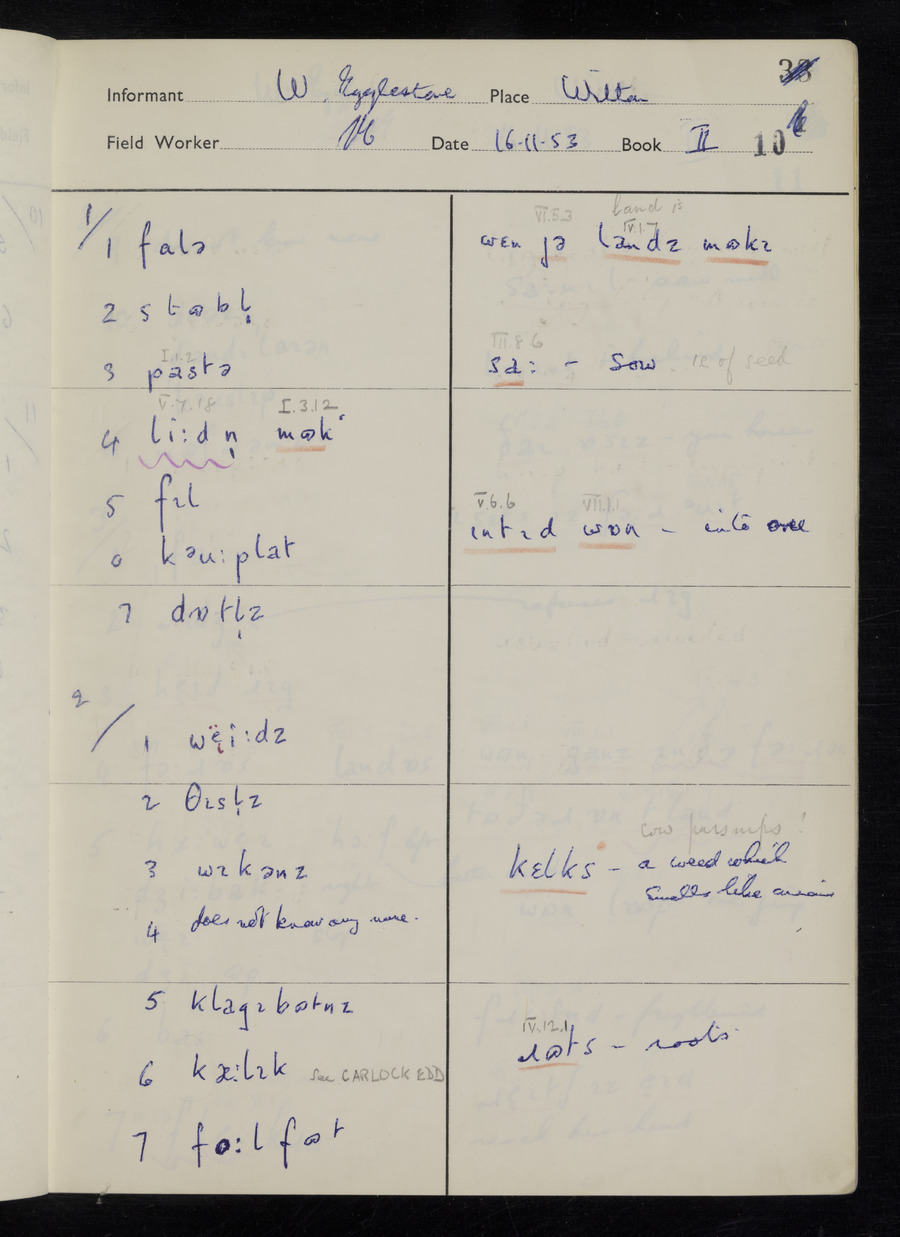 Informant W. Egglestone Place Wilton
Field Worker Date 16-11-53 Book II 10
1/
1 falə
wɛn jə landz mɷkɪ
VI.5.3 land is
IV.1.7
2 stɷbl̩
3 pastə
I.1.2
sa: – sow ie of seed
III.8.6
4 li:dn̩ mɷk
V.7.18 I.3.12
5 fɪl
V.6.6 VII.1.1
intɪd wɒn – into one
6 kəu:plat
7 dɒtl̩z
2/
1 wëi:dz
2 θɪsl̩z
3 wɪkənz
cow parsnips!
kɛlks – a weed which
smells like
4 does not know any name.
5 klagɪbɷtnz
IV.12.1
ɹɷts – roots
6 kæ:lɪk see CARLOCK EDD
7 fo:lfɷt